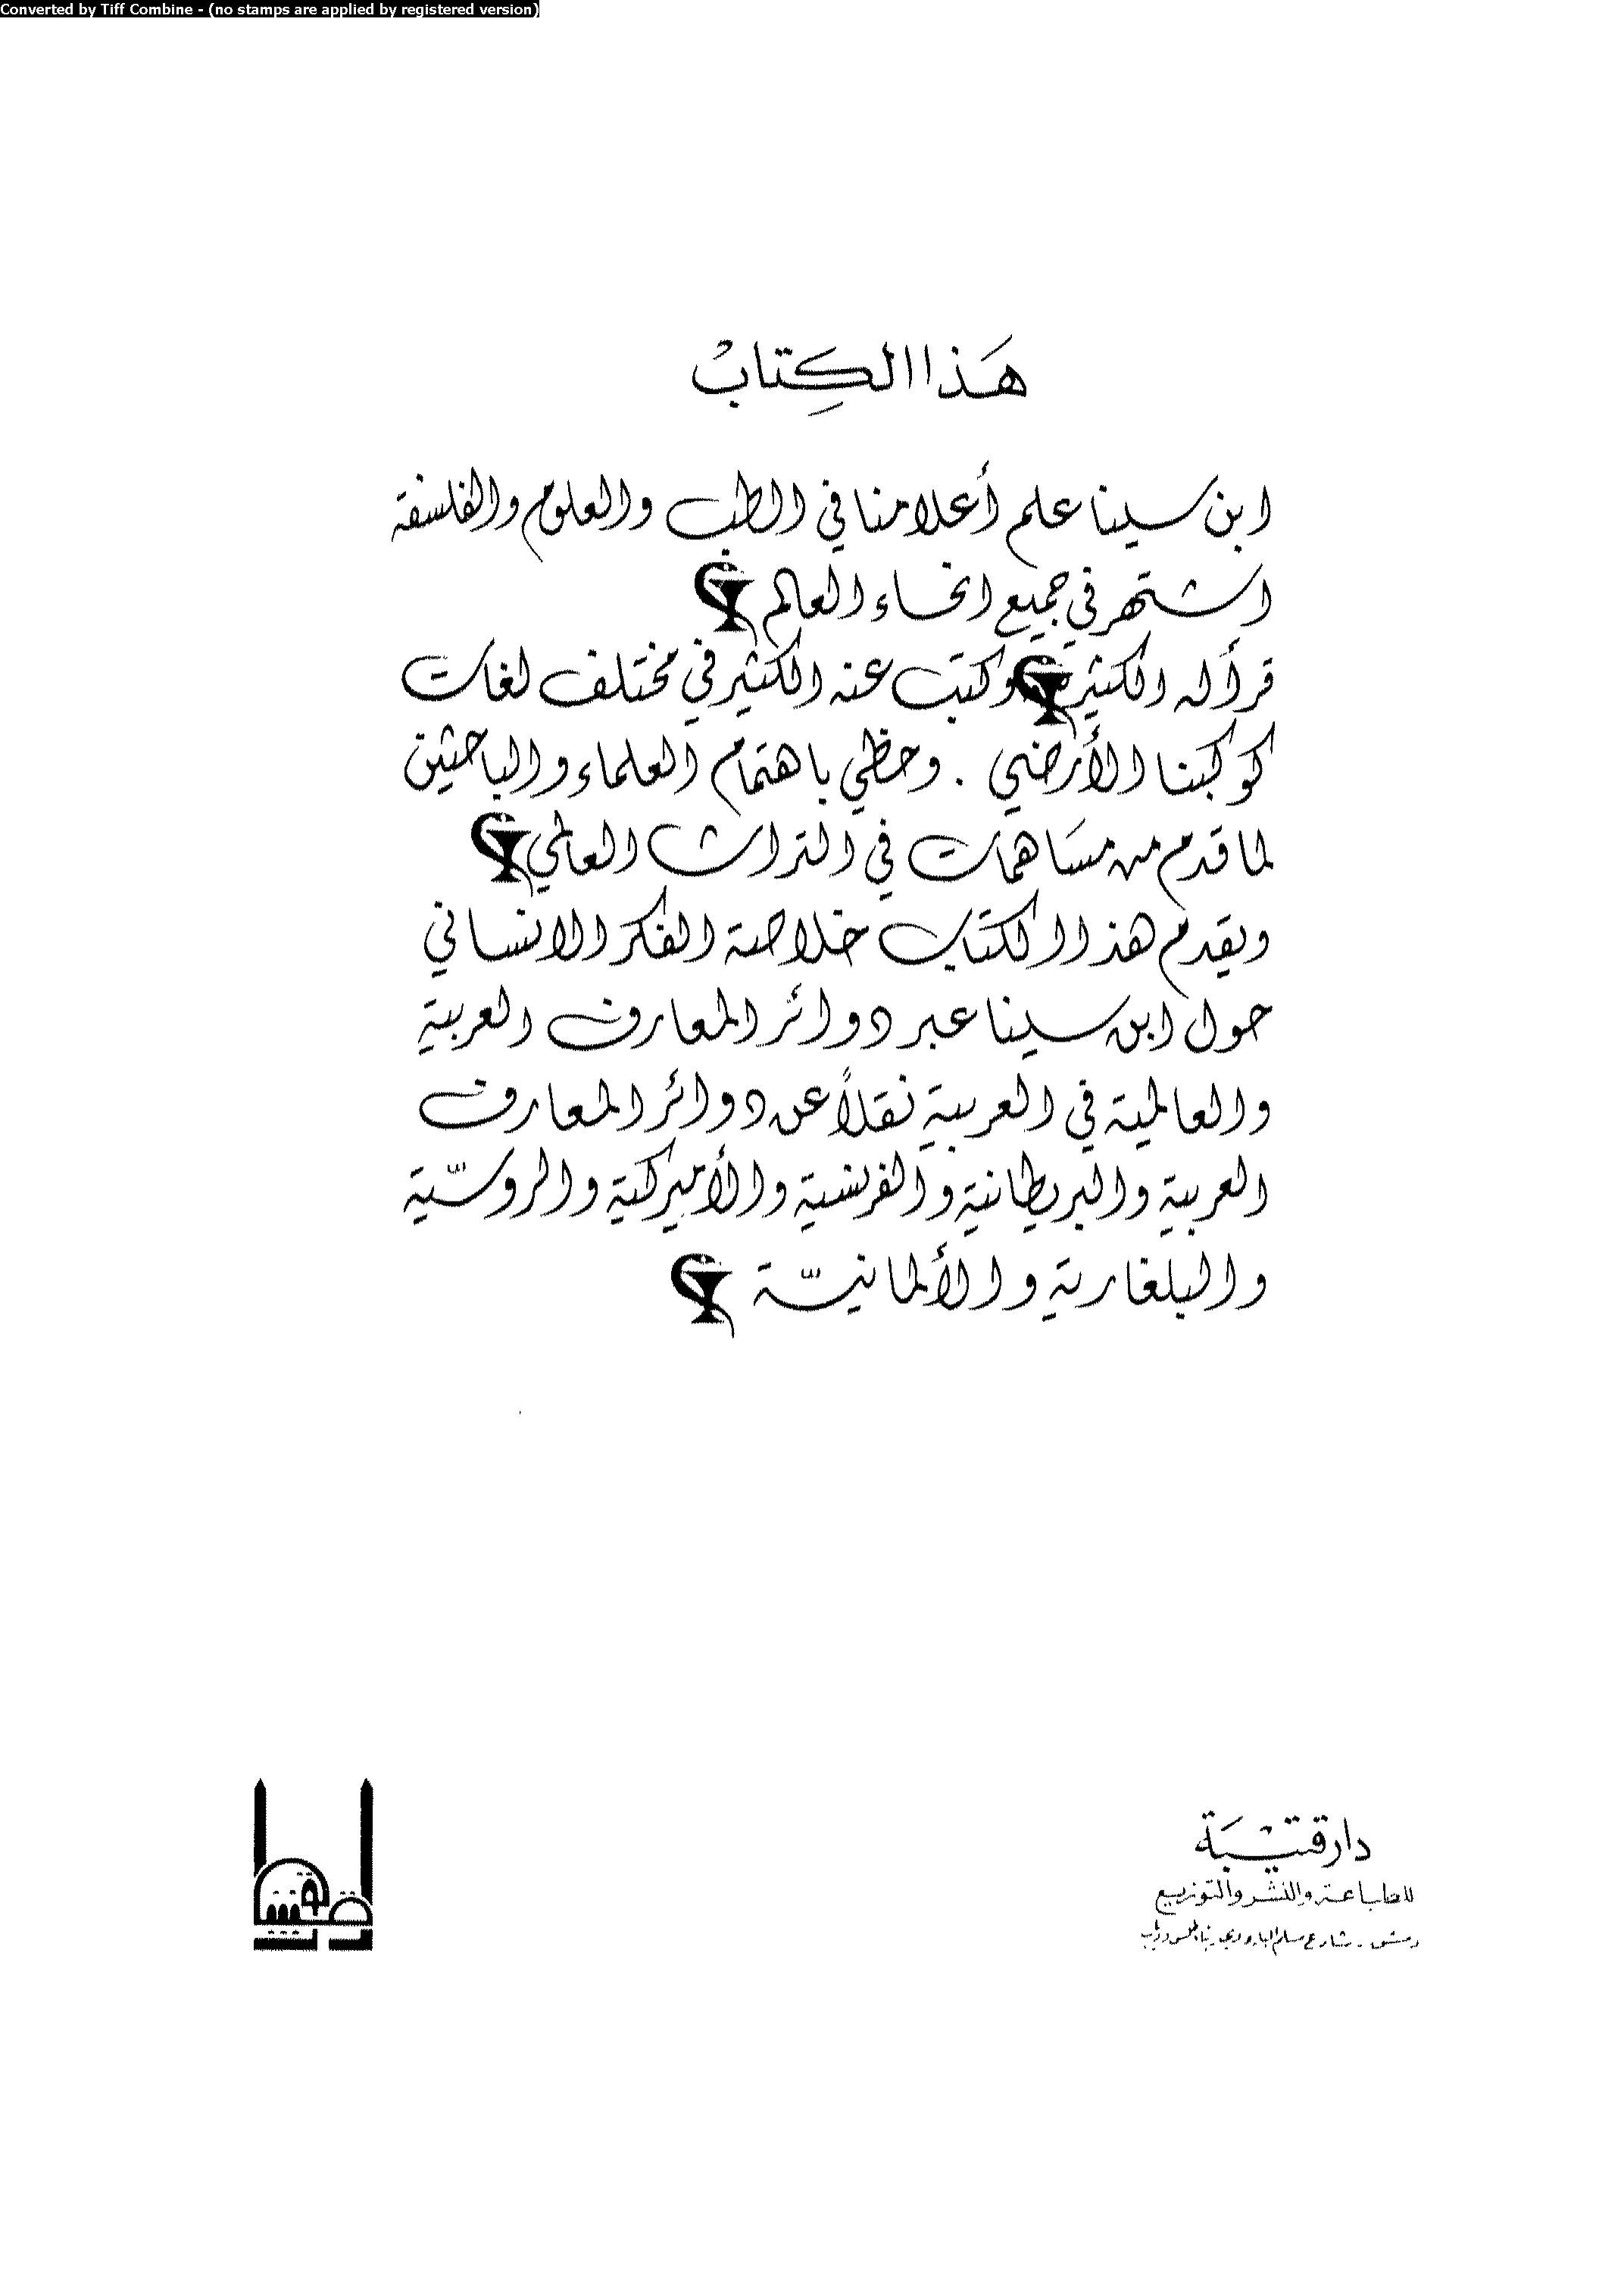 Converted by Tiff Combine - (no stamps are applied by registered version)
هَذا الكِتابْ
ابن سينا علم أعلامنا في الطب والعلوم والفلسفة
اشتهر في جميع انحاء العالم
قرأ له الكثير وكتب عنه الكثير في مختلف لغات
كوكبنا الأرضي . وحظي باهتمام العلماء والباحثين
لما قدم من مسَاهمات في التراث العالمي
ويقدم هذا الكتاب خلاصة الفكر الانساني
حول ابن سينا عبر دوائر المعارف العربية
والعالمية في العربية نقلاً عن دوائر المعارف
العربية والبريطانية والفرنسية والأميركية والروسّية
والبلغارية والألمانيّة
دار قتَيْبَة
للطباعة والنشر والتوزيع
دمشق - شارع مسلم البارودي